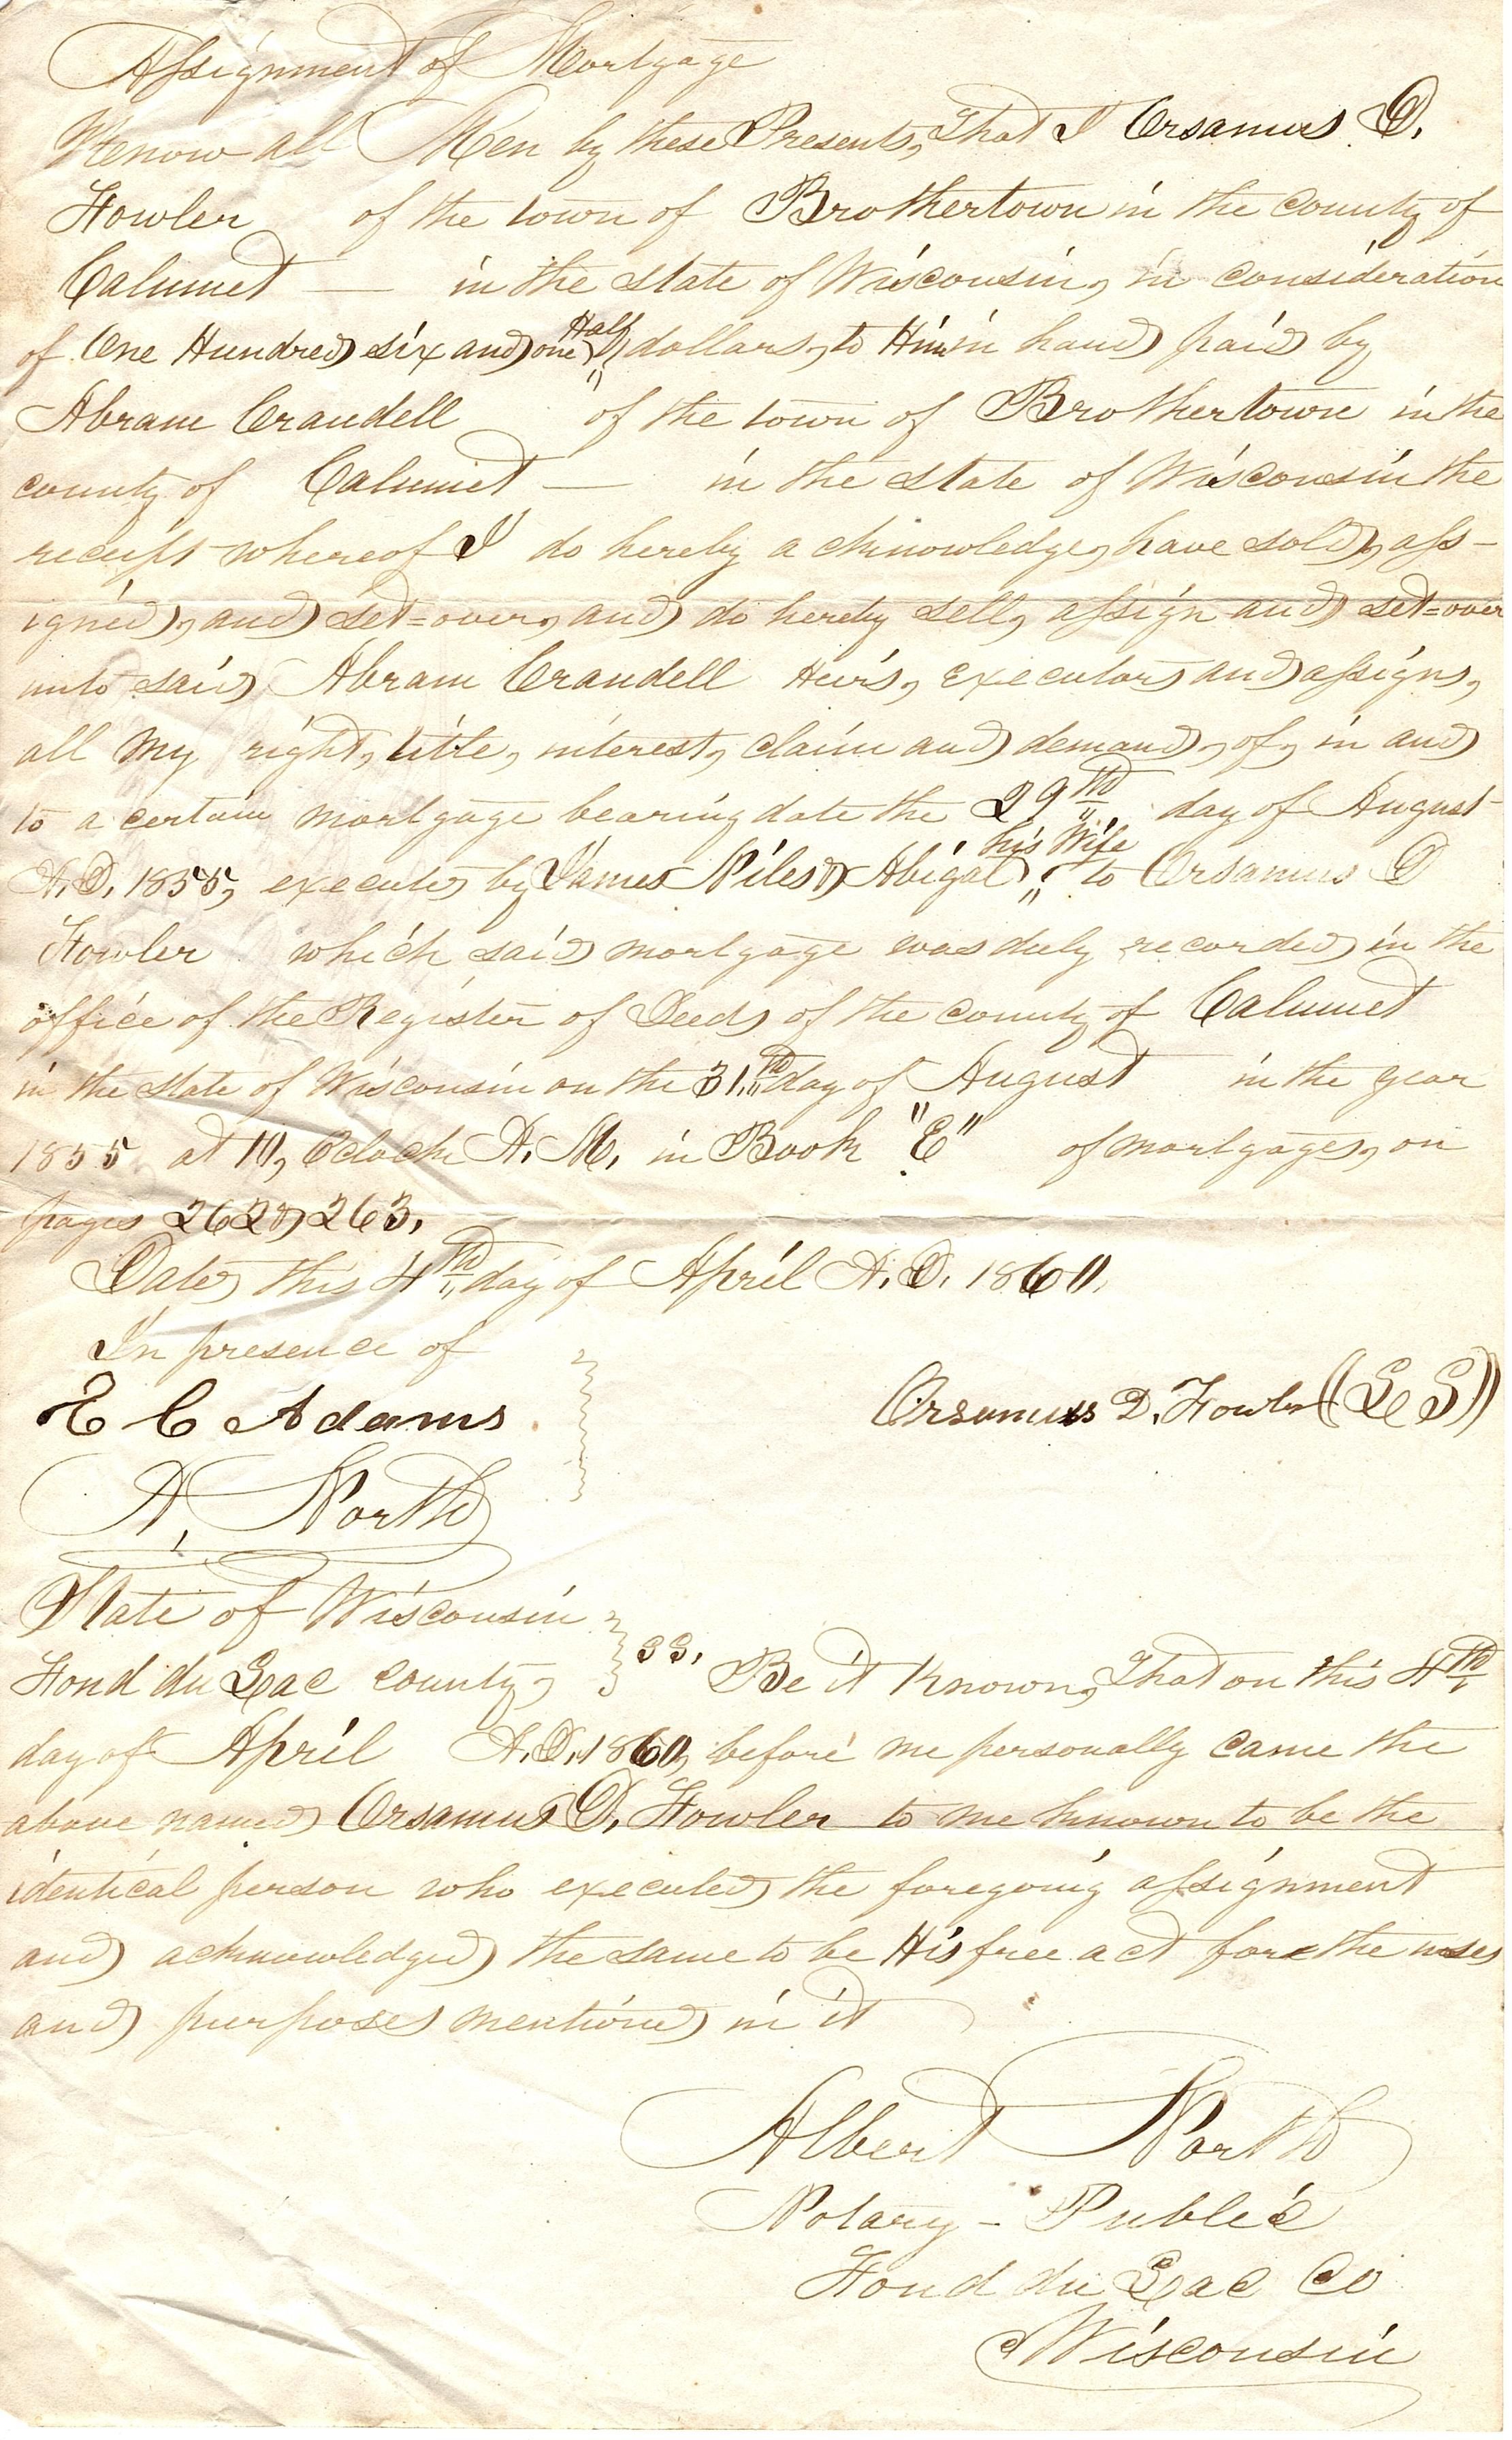 Assignment of Mortgage
Know all Men by these Presents, That I Orsamus D.
Fowler of the town of Brothertown in the County of
Calumet — in the State of Wisconsin, in consideration
of One Hundred six and one Half dollars, to Him in hand paid by
Abram Crandell of the town of Brothertown in the
county of Calumet — in the State of Wisconsin the
receipt whereof I do hereby acknowledge, have sold, ass-
igned, and set=over, and do hereby sell, assign and set=over
unto said Abram Crandell Heirs, executors and assigns,
all my right, title, interest, claim and demand, of, in and
to a certain mortgage bearing date the 29th day of August
A.D. 1855, executed by James Niles & Abigal his Wife to Orsamus D
Fowler which said mortgage was duly recorded in the
office of the Register of Deeds of the county of Calumet
in the State of Wisconsin on the 31,th day of August in the year
1855 at 10, Oclock A.M. in Book "E" of mortgages, on
pages 262 & 263.
Dated this 4th day of April A.D. 1860.
In presence of
E C Adams Orsamus D. Fowler (L S)
A. North
State of Wisconsin
Fond du Lac county, } SS. Be it Known, That on this 4th
day of April A.D. 1860, before me personally came the
above named Orsamus D. Fowler to me known to be the
identical person who executed the foregoing assignment
and acknowledged the same to be His free act for the uses
and purposes mentioned in it
Albert North
Notary - Public
Fond du Lac Co
Wisconsin